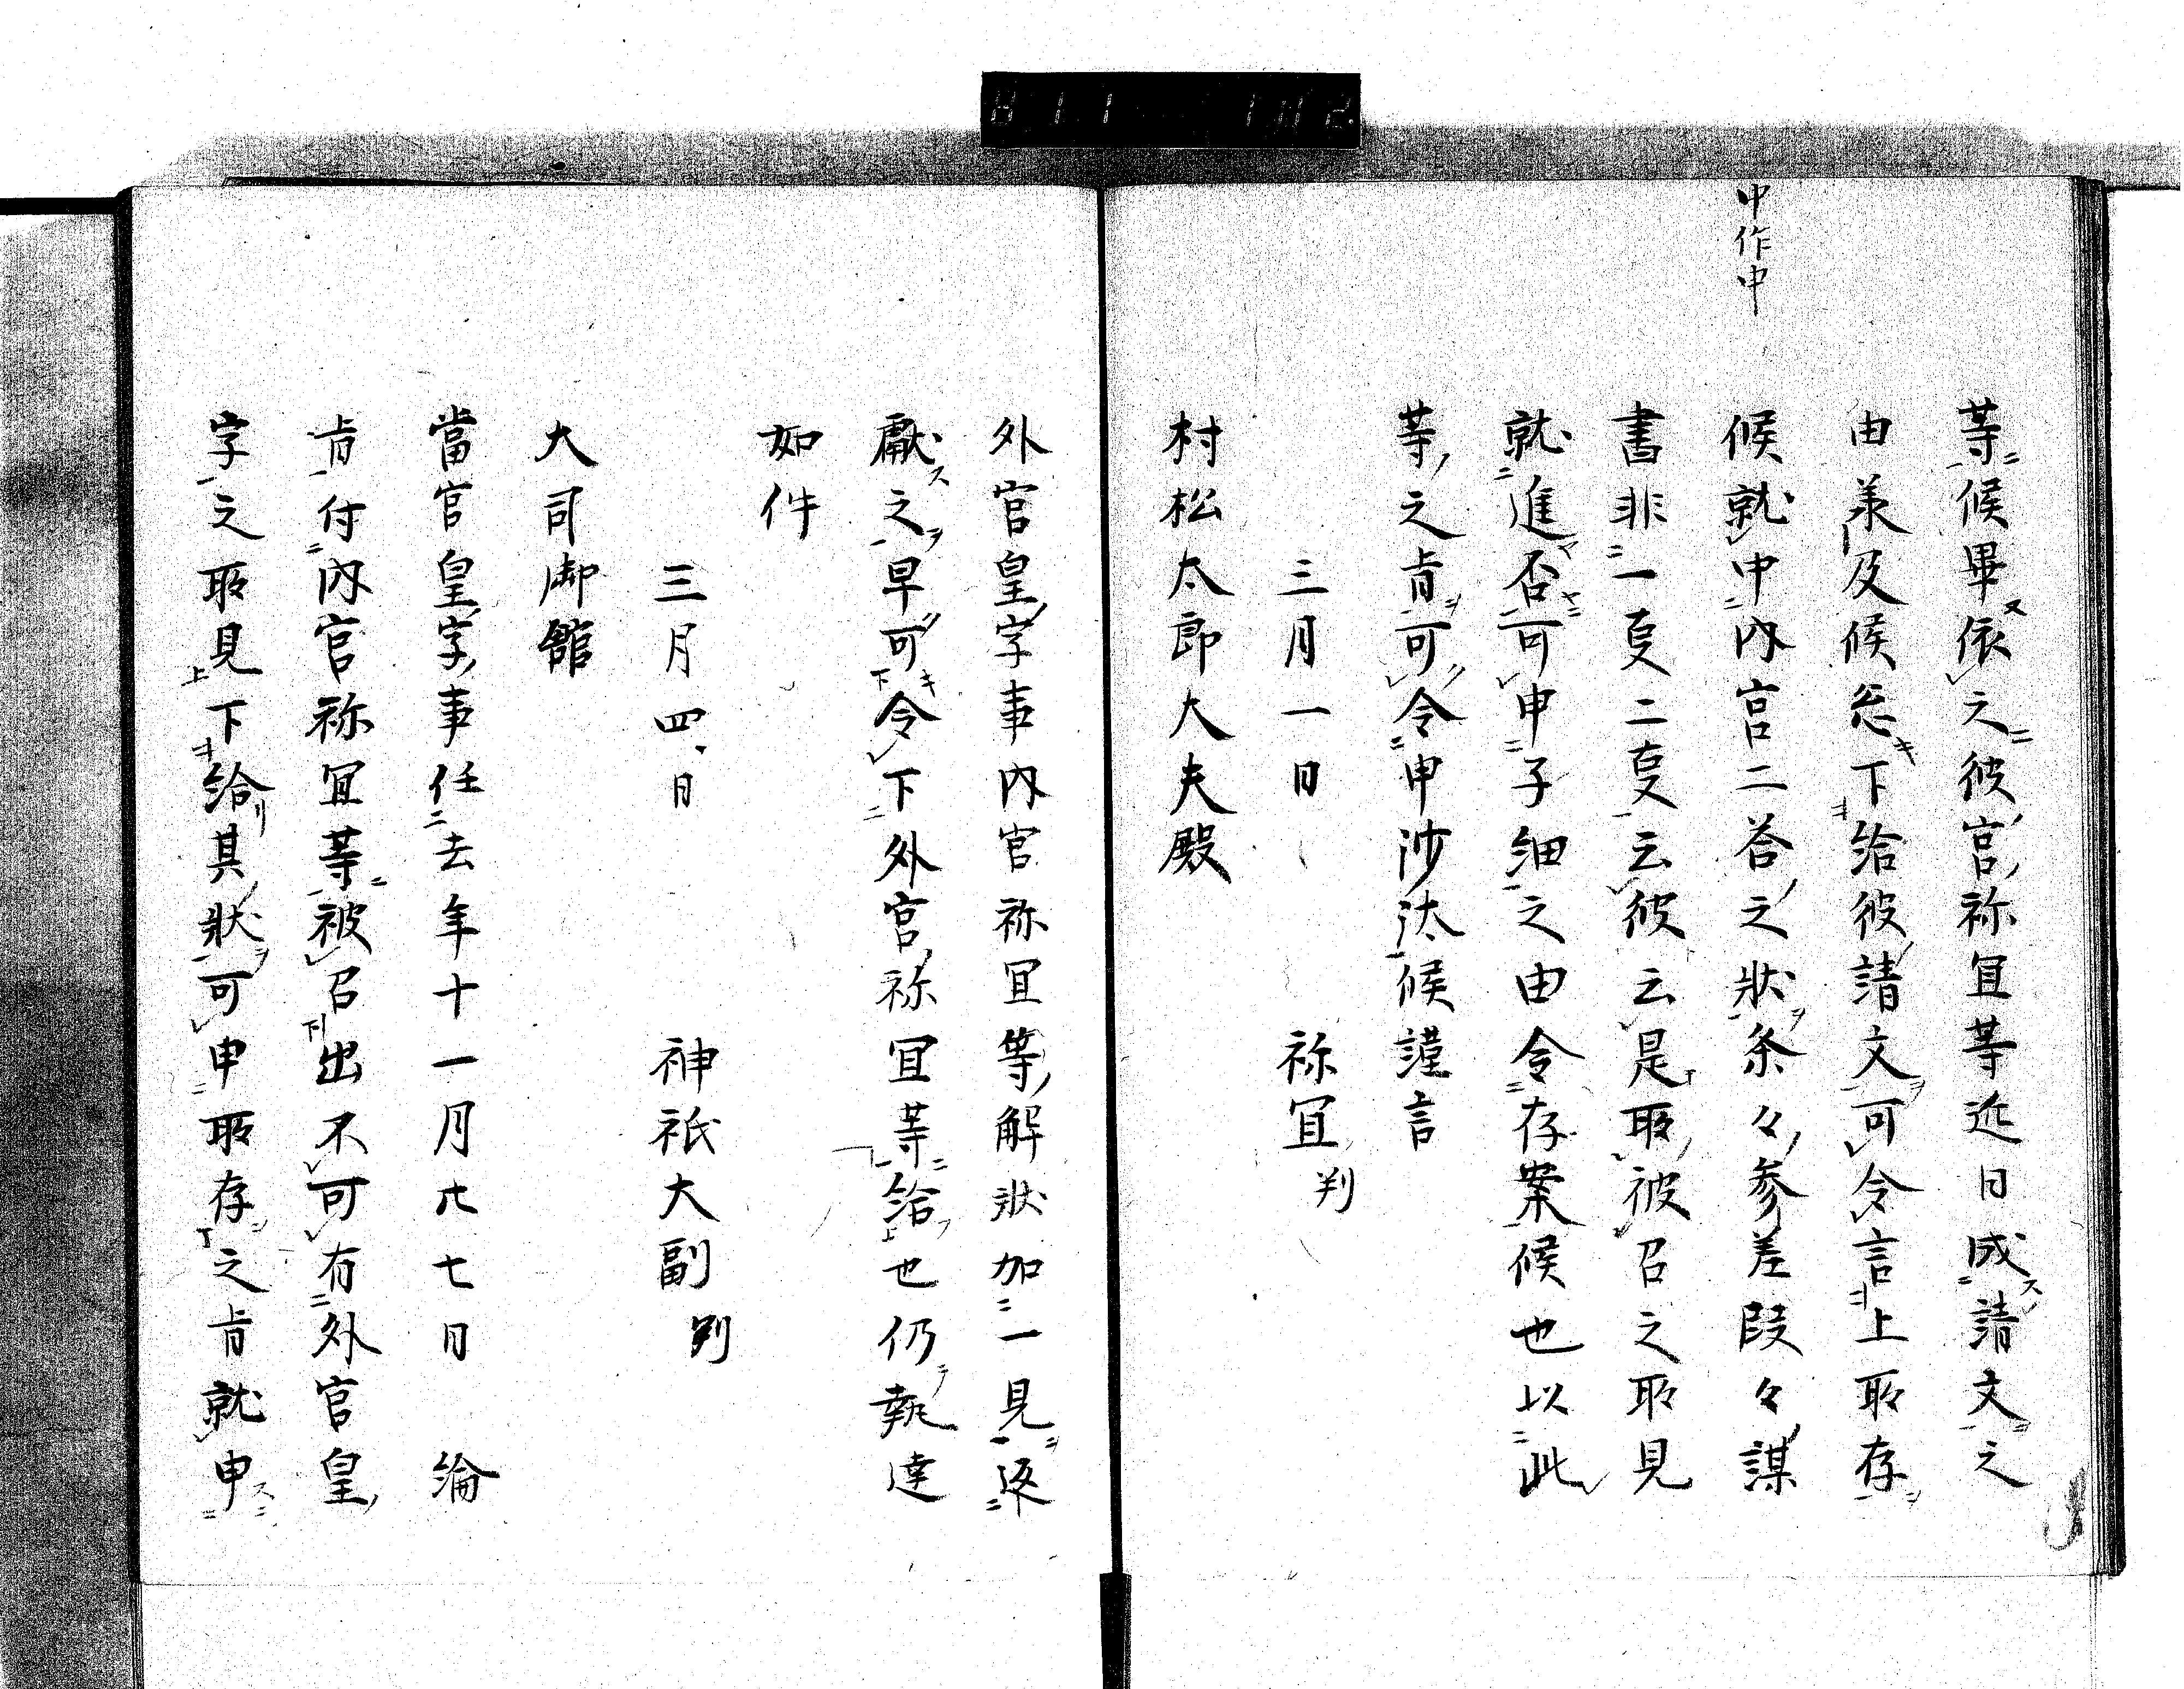 申作中
等候畢依之彼宮祢冝等近日成請文之
由羕及候忩下給彼請文可令言上所存
候就中内宮二答之状条々参差段々謀
書非一𡕝二𡕝云彼云是所被召之所見
就進否可申子細之由令存案候也以此
等之肯可令申沙汰候謹言
三月一日 祢冝判
村松太郎大夫殿
外宮皇字事内宮祢冝等解状加一見返
献之早可令下外宮祢冝等給也仍執達
如件
三月四日 神祇大副判
大司御館
當宮皇字事任去年十一月廿七日 綸
肯付内宮祢冝等被召出不可有外宮皇
字之所見下給其状可申所存之肯就申